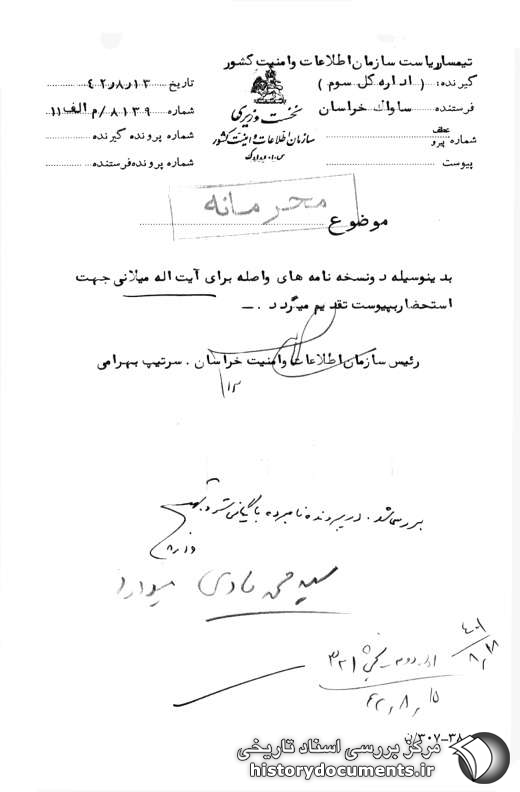 تیمسار ریاست سازمان اطلاعات وامنیت کشور
گیرنده: ( اداره کل سوم )
فرستنده ساواک خراسان
شماره عطف پیرو
پیوست
نخست وزیری
سازمان اطلاعات و امنیت کشور
س.ا.و.ا.ک
تاریخ ۴۲٫۸٫۱۳
شماره ۸۱۳۹ /م الف ۱۱
شماره پرونده گیرنده
شماره پرونده فرستنده
محرمانه
موضوع
بدینوسیله دونسخه نامه های واصله برای آیت اله میلانی جهت
استحضار بپیوست تقدیم میگردد . ــ
رئیس سازمان اطلاعات وامنیت خراسان . سرتیپ بهرامی
۱۲
بررسی شد . در پرونده نامبرده بایگانی شود
۸٫۸
۳۲۱
۴۲٫۸٫۱۵
۳۰۷-۳۸
مرکز بررسی اسناد تاریخی
historydocuments.ir